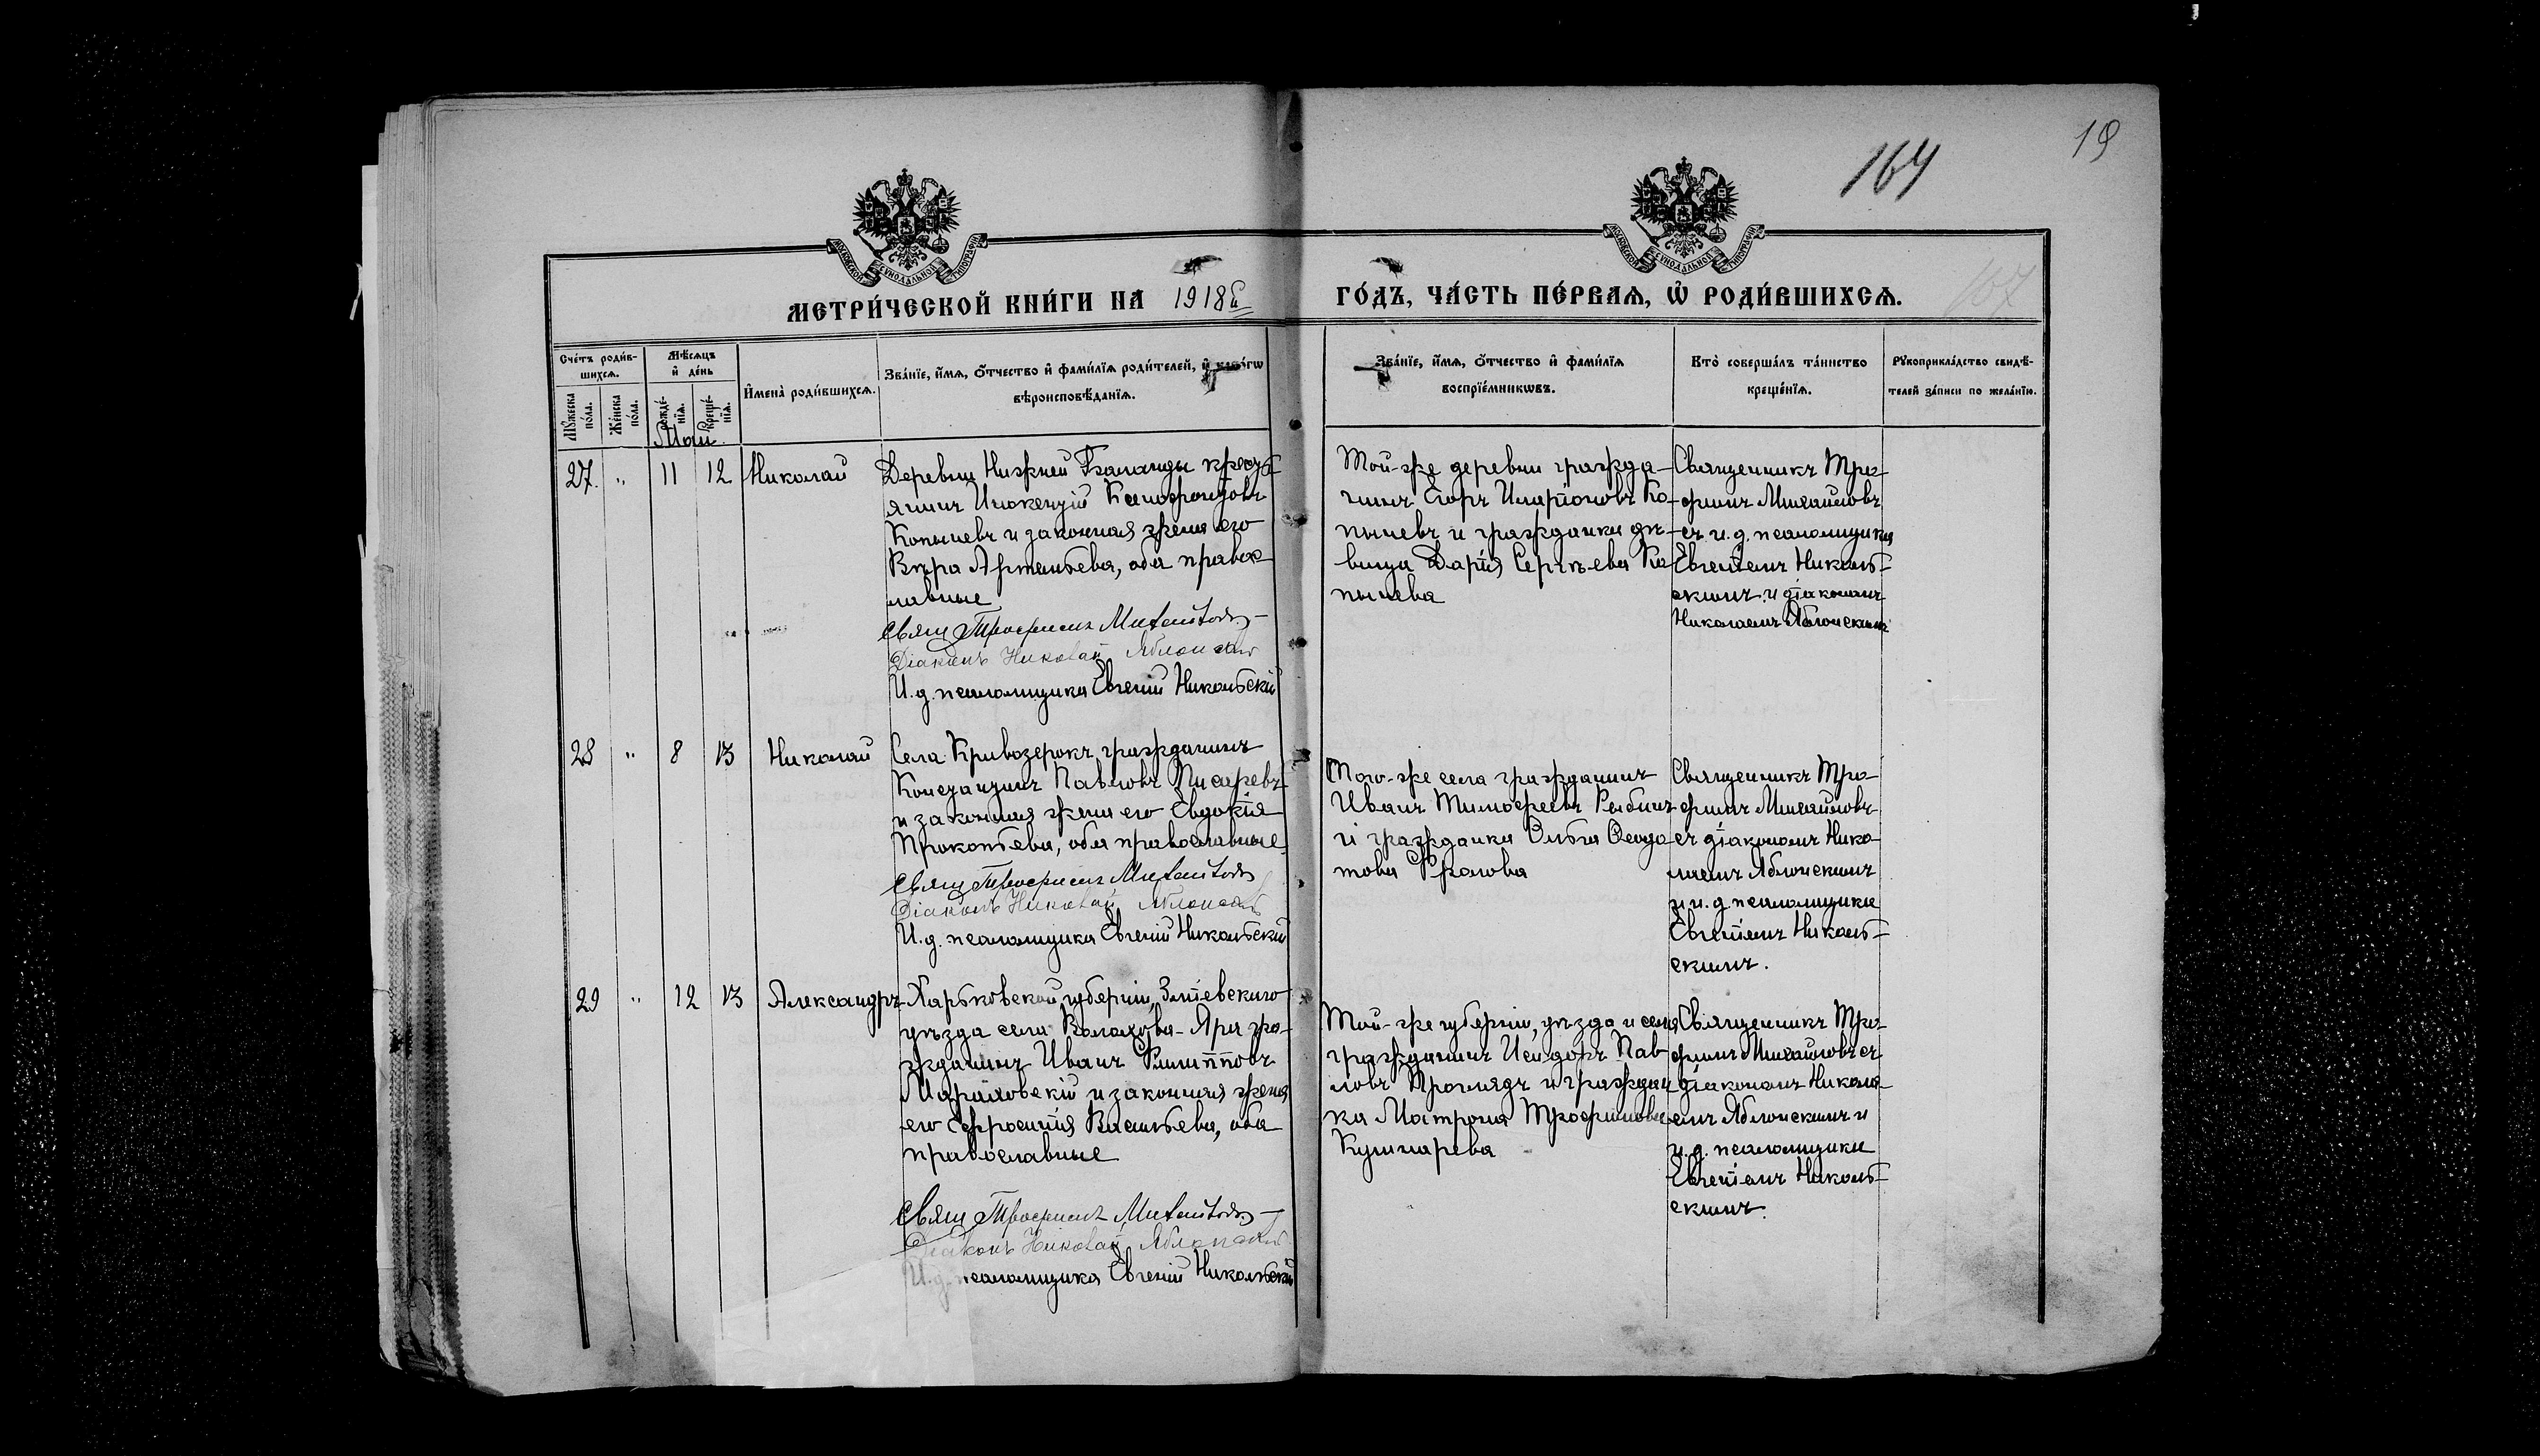 164
19
МОСКОВСКОЙ СѴНОДАЛЬНОЙ ТИПОГРАФІИ
МОСКОВСКОЙ СѴНОДАЛЬНОЙ ТИПОГРАФІИ
МЕТРИ́ЧЕСКОЙ КНИ́ГИ НА 1918й ГО́ДЪ, ЧА́СТЬ ПЕ́РВАЯ, Ѡ РОДИ́ВШИХСѦ.
107
Сче́тъ роди́в-
шихсѧ.
Мѣ́сѧцъ
и де́нь
Мꙋ́жеска
по́ла.
Же́нска
по́ла.
рожде́-
нїѧ.
креще́-
нїѧ.
И҆мена̀ роди́вшихсѧ.
Зва́нїе, и҆́мѧ, ѻ҆́тчество и҆ фами́лїѧ роди́телей, и҆ како́гѡ
вѣроисповѣ́данїѧ.
Зва́нїе, и҆́мѧ, ѻ҆́тчество и҆ фами́лїѧ
воспрїе́мникѡвъ.
Кто̀ соверша́лъ та́инство
креще́нїѧ.
Рꙋкоприкла́дство свидѣ́-
телей за́писи по жела́нїю.
Май
27. " 11 12 Николай
Деревни Нижней
янинъ Инокентій
Копычевъ и законная жена его
Вѣра Артемьева, оба правос-
лавные
Свящ Трофимъ Михайловъ
Діаконъ Николай Яблонскій
И.д. псаломщика Евгеній Никольскій
Той-же деревни гражда-
нинъ Егоръ Иларіоновъ Ко-
пычевъ и гражданка дѣ-
вица Дарія Сергѣева Ко-
пычева
Священникъ Тро-
фимъ Михайловъ
съ и.д. псаломщика
Евгеніемъ Николь-
скимъ и діакономъ
Николаемъ Яблонскимъ
28 " 8 13 Николай
Села Кривозерокъ гражданинъ
Констанцинъ Павловъ Писаревъ
и законная жена его Евдокія
Прокопьева, оба православные.
Свящ Трофимъ Михайловъ
Діаконъ Николай Яблонскій
И.д. псаломщика Евгеній Никольскій
Того-же села гражданинъ
Иванъ Тимофеевъ Рыбинъ
и гражданка Ольга Ѳеодо
това Фролова
Священникъ Тро-
фимъ Михайловъ
съ діакономъ Нико-
лаемъ Яблонскимъ
и и.д. псаломщика
Евгеніемъ Николь-
скимъ.
29 " 12 13 Александръ
Харьковской губерніи, Зміевскаго
уѣзда села Волохова-Яра гра-
жданинъ Иванъ Филипповъ
и законная жена
его Ефросинія Васильева, оба
православные
Свящ Трофимъ Михайловъ
Діаконъ Николай Яблонскій
И.д. псаломщика Евгеній Никольскій
Той-же губерніи, уѣзда и села
гражданинъ Исидоръ Пав-
ловъ и граждан
ка Матрона Трофимова
Кушнарева
Священникъ Тро-
фимъ Михайловъ съ
діакономъ Никола-
емъ Яблонскимъ и
и.д. псаломщика
Евгеніемъ Николь-
скимъ.